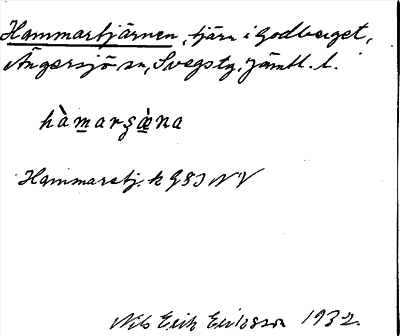 Hammartjärnen, tjärn i Godberget,
Ängersjö sn, Svegs tg. Jämtl. l.
hàmarʂæ̀na
Hammarstj. k G8J NV
Nils Erik Eriksson 1932.